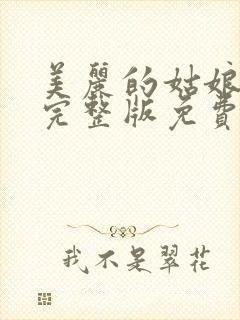 美麗的姑娘
完整版免費
我不是翠花